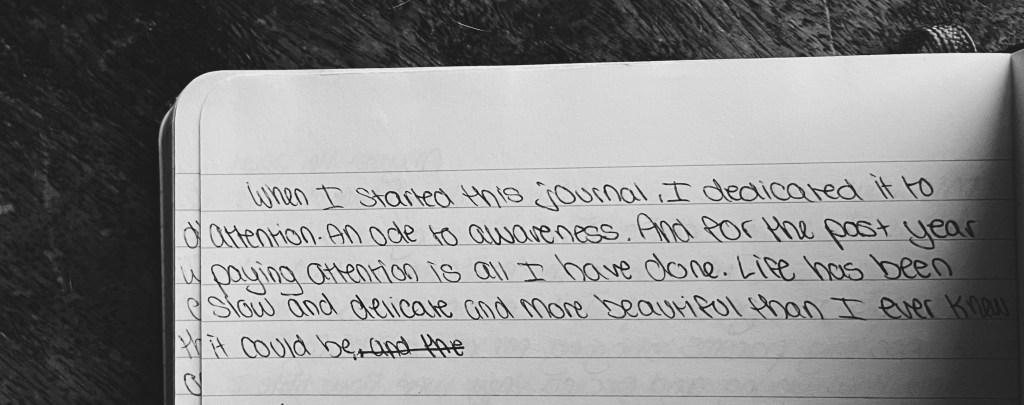 When I started this journal, I dedicated it to
attention. An ode to awareness. And for the past year
paying attention is all I have done. Life has been
slow and delicate and more beautiful than I ever knew
it could be, and the